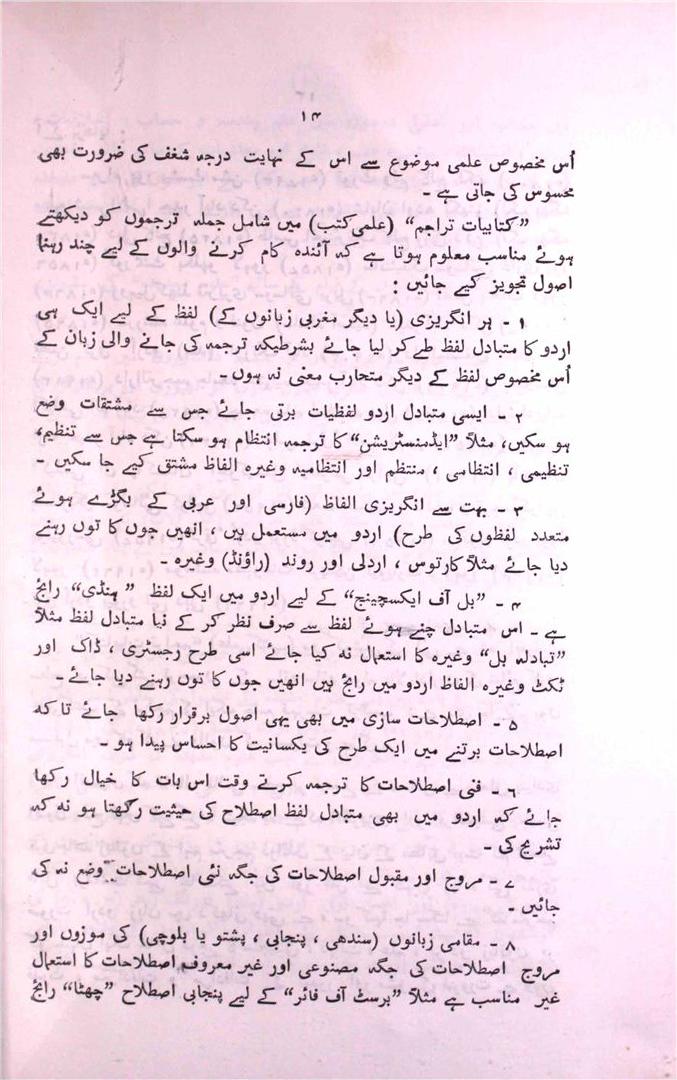 ۱۴
اُس مخصوص علمی موضوع سے اس کے نہایت درجہ شغف کی ضرورت بھی
محسوس کی جاتی ہے ۔
”کتابیات تراجم“ (علمی کتب) میں شامل جملہ ترجموں کو دیکھتے
ہوئے مناسب معلوم ہوتا ہے کہ آئندہ کام کرنے والوں کے لیے چند رہنما
اصول تجویز کیے جائیں :
۱ - ہر انگریزی (یا دیگر مغربی زبانوں کے) لفظ کے لیے ایک ہی
اردو کا متبادل لفظ طے کر لیا جائے بشرطیکہ ترجمہ کی جانے والی زبان کے
اُس مخصوص لفظ کے دیگر متحارب معنی نہ ہوں ۔
۲ - ایسی متبادل اردو لفظیات برتی جائے جس سے مشتقات وضع
ہو سکیں، مثلاً ”ایڈمنسٹریشن“ کا ترجمہ انتظام ہو سکتا ہے جس سے تنظیم،
تنظیمی ، انتظامی ، منتظم اور انتظامیہ وغیرہ الفاظ مشتق کیے جا سکیں ۔
۳ - بہت سے انگریزی الفاظ (فارسی اور عربی کے بگڑے ہوئے
متعدد لفظوں کی طرح) اردو میں مستعمل ہیں ، انھیں جوں کا توں رہنے
دیا جائے مثلاً کارتوس ، اردلی اور روند (راؤنڈ) وغیرہ ۔
۴ - ”بل آف ایکسچینج“ کے لیے اردو میں ایک لفظ ”ہنڈی“ رائج
ہے ۔ اس متبادل چنے ہوئے لفظ سے صرف نظر کر کے نیا متبادل لفظ مثلاً
”تبادلہ بل“ وغیرہ کا استعمال نہ کیا جائے اسی طرح رجسٹری ، ڈاک اور
ٹکٹ وغیرہ الفاظ اردو میں رائج ہیں انھیں جوں کا توں رہنے دیا جائے ۔
۵ - اصطلاحات سازی میں بھی یہی اصول برقرار رکھا جائے تا کہ
اصطلاحات برتنے میں ایک طرح کی یکسانیت کا احساس پیدا ہو ۔
۶ - فنی اصطلاحات کا ترجمہ کرتے وقت اس بات کا خیال رکھا
جائے کہ اردو میں بھی متبادل لفظ اصطلاح کی حیثیت رکھتا ہو نہ کہ
تشریح کی ۔
۷ - مروج اور مقبول اصطلاحات کی جگہ نئی اصطلاحات وضع نہ کی
جائیں ۔
۸ - مقامی زبانوں (سندھی ، پنجابی ، پشتو یا بلوچی) کی موزوں اور
مروج اصطلاحات کی جگہ مصنوعی اور غیر معروف اصطلاحات کا استعمال
غیر مناسب ہے مثلاً ”برسٹ آف فائر“ کے لیے پنجابی اصطلاح ”چھٹا“ رائج